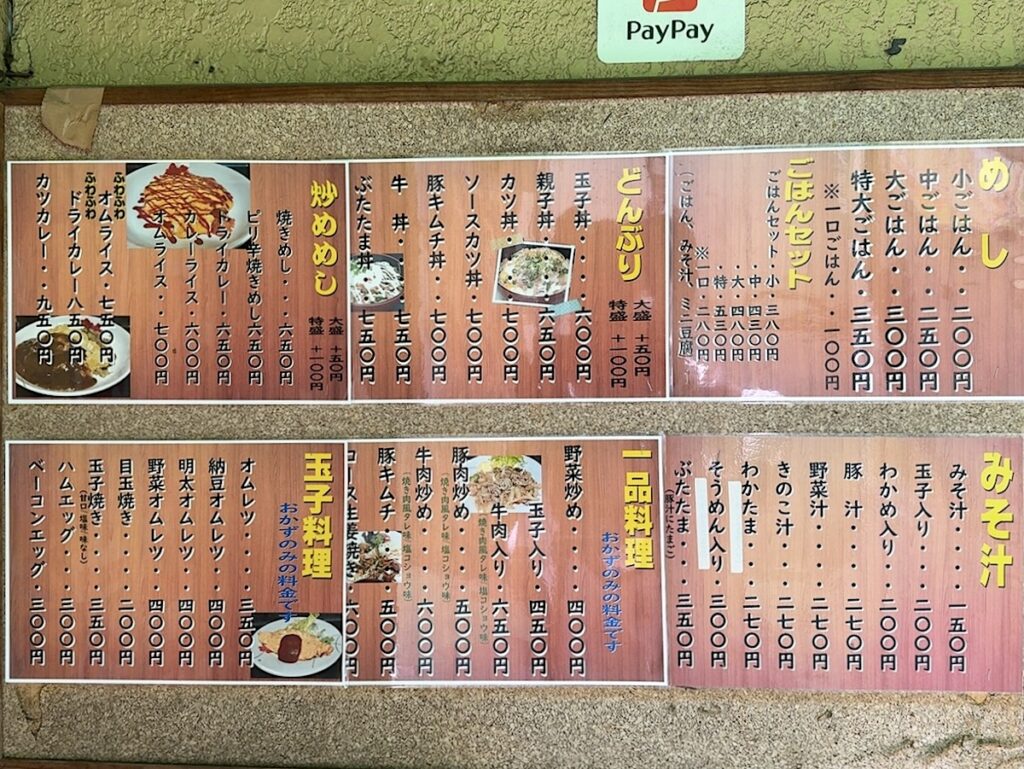 PayPay
めし
小ごはん・・二〇〇円
中ごはん・・二五〇円
大ごはん・・三〇〇円
特大ごはん・三五〇円
※一口ごはん・・一〇〇円
ごはんセット
ごはんセット・小・三八〇円
・中・四三〇円
・大・四八〇円
・特・五三〇円
※一口・二八〇円
(ごはん、みそ汁、ミニ豆腐)
どんぶり
大盛 +五〇円
特盛 +一〇〇円
玉子丼・・六〇〇円
親子丼・・六五〇円
カツ丼・・七〇〇円
ソースカツ丼・七〇〇円
豚キムチ丼・七〇〇円
牛 丼・・七五〇円
ぶたたま丼・七五〇円
炒めめし
大盛 +五〇円
特盛 +一〇〇円
焼きめし・・・六五〇円
ピリ辛焼きめし六五〇円
ドライカレー・六五〇円
カレーライス・六〇〇円
オムライス・・七〇〇円
ふわふわ
オムライス・七五〇円
ふわふわ
ドライカレー八五〇円
カツカレー・・九五〇円
みそ汁
みそ汁・・・・一五〇円
玉子入り・・・二〇〇円
わかめ入り・・二〇〇円
豚 汁・・・・二七〇円
野菜汁・・・・二七〇円
きのこ汁・・・二七〇円
わかたま・・・二七〇円
そうめん入り・三〇〇円
ぶたたま・・・三五〇円
(豚汁にたまご)
一品料理
おかずのみの料金です
野菜炒め・・・四〇〇円
玉子入り・四五〇円
牛肉入り・六五〇円
(焼き肉風タレ味)(塩コショウ味)
豚肉炒め・・・五〇〇円
(焼き肉風タレ味)(塩コショウ味)
牛肉炒め・・・六〇〇円
(焼き肉風タレ味)(塩コショウ味)
豚キムチ・・・五〇〇円
ロース生姜焼き・五〇〇円
玉子料理
おかずのみの料金です
オムレツ・・・三五〇円
納豆オムレツ・四〇〇円
明太オムレツ・四〇〇円
野菜オムレツ・四〇〇円
目玉焼き・・・二〇〇円
玉子焼き・・・三五〇円
(甘口・塩味・味なし)
ハムエッグ・・・三〇〇円
ベーコンエッグ・三〇〇円